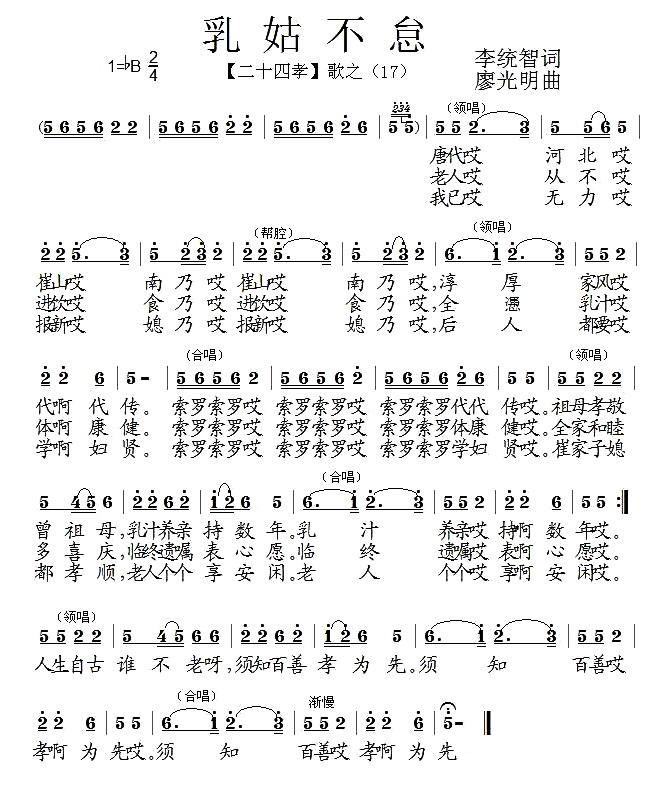 乳姑不怠
1=♭B 2/4
【二十四孝】歌之（17）
李统智词
廖光明曲
（领唱）
(5656 22 | 5656 2̇2̇ | 5656 2̇6 | 5 5) | 552̇. 3̇ | 5 56 5 |
唐代哎 河北哎
老人哎 从不哎
我已哎 无力哎
（帮腔） （领唱）
2̇2̇5. 3̇ | 5 2̇3̇ 5 | 2̇2̇5. 3̇ | 5 2̇3̇ 5 | 6. 1̇ 2̇. 3̇ | 5 5 5 |
崔山哎 南乃哎 崔山哎 南乃哎，淳厚 家风哎
进饮哎 食乃哎 进饮哎 食乃哎，全凭 乳汁哎
报新哎 媳乃哎 报新哎 媳乃哎，后人 都要哎
（合唱） （领唱）
2̇ 2̇ 6 | 5 – | 5656 2 | 5656 2̇ | 5656 2̇6 | 5 5 | 5 5 2 2 |
代啊代传。索罗索罗哎 索罗索罗哎 索罗索罗代代 传哎。祖母孝敬
体啊康健。索罗索罗哎 索罗索罗哎 索罗索罗体康 健哎。全家和睦
学啊妇贤。索罗索罗哎 索罗索罗哎 索罗索罗学妇 贤哎。崔家子媳
（合唱）
5 45 6 | 2̇2̇62̇ | 1̇2̇ 6 5 | 6. 1̇ 2̇. 3̇ | 5 5 2̇ | 2̇ 2̇ 6 | 5 5 :‖
曾祖母，乳汁养亲 持数年。乳汁 养亲哎 持啊数年哎。
多喜庆，临终遗嘱 表心愿。临终 遗嘱哎 表啊心愿哎。
都孝顺，老人个个 享安闲。老人 个个哎 享啊安闲哎。
（领唱）
5522 | 5 45 | 66 | 2̇2̇62̇ | 1̇2̇ 6 5 | 6. 1̇ 2̇. 3̇ | 5 5 2̇ |
人生自古 谁不老呀，须知百善 孝为先。须知 百善哎
（合唱） 渐慢
2̇ 2̇ 6 | 5 5 | 6. 1̇ 2̇. 3̇ | 5 5 2̇ | 2̇ 2̇ 6 | 5 – ‖
孝啊为先哎。须知 百善哎 孝啊为先